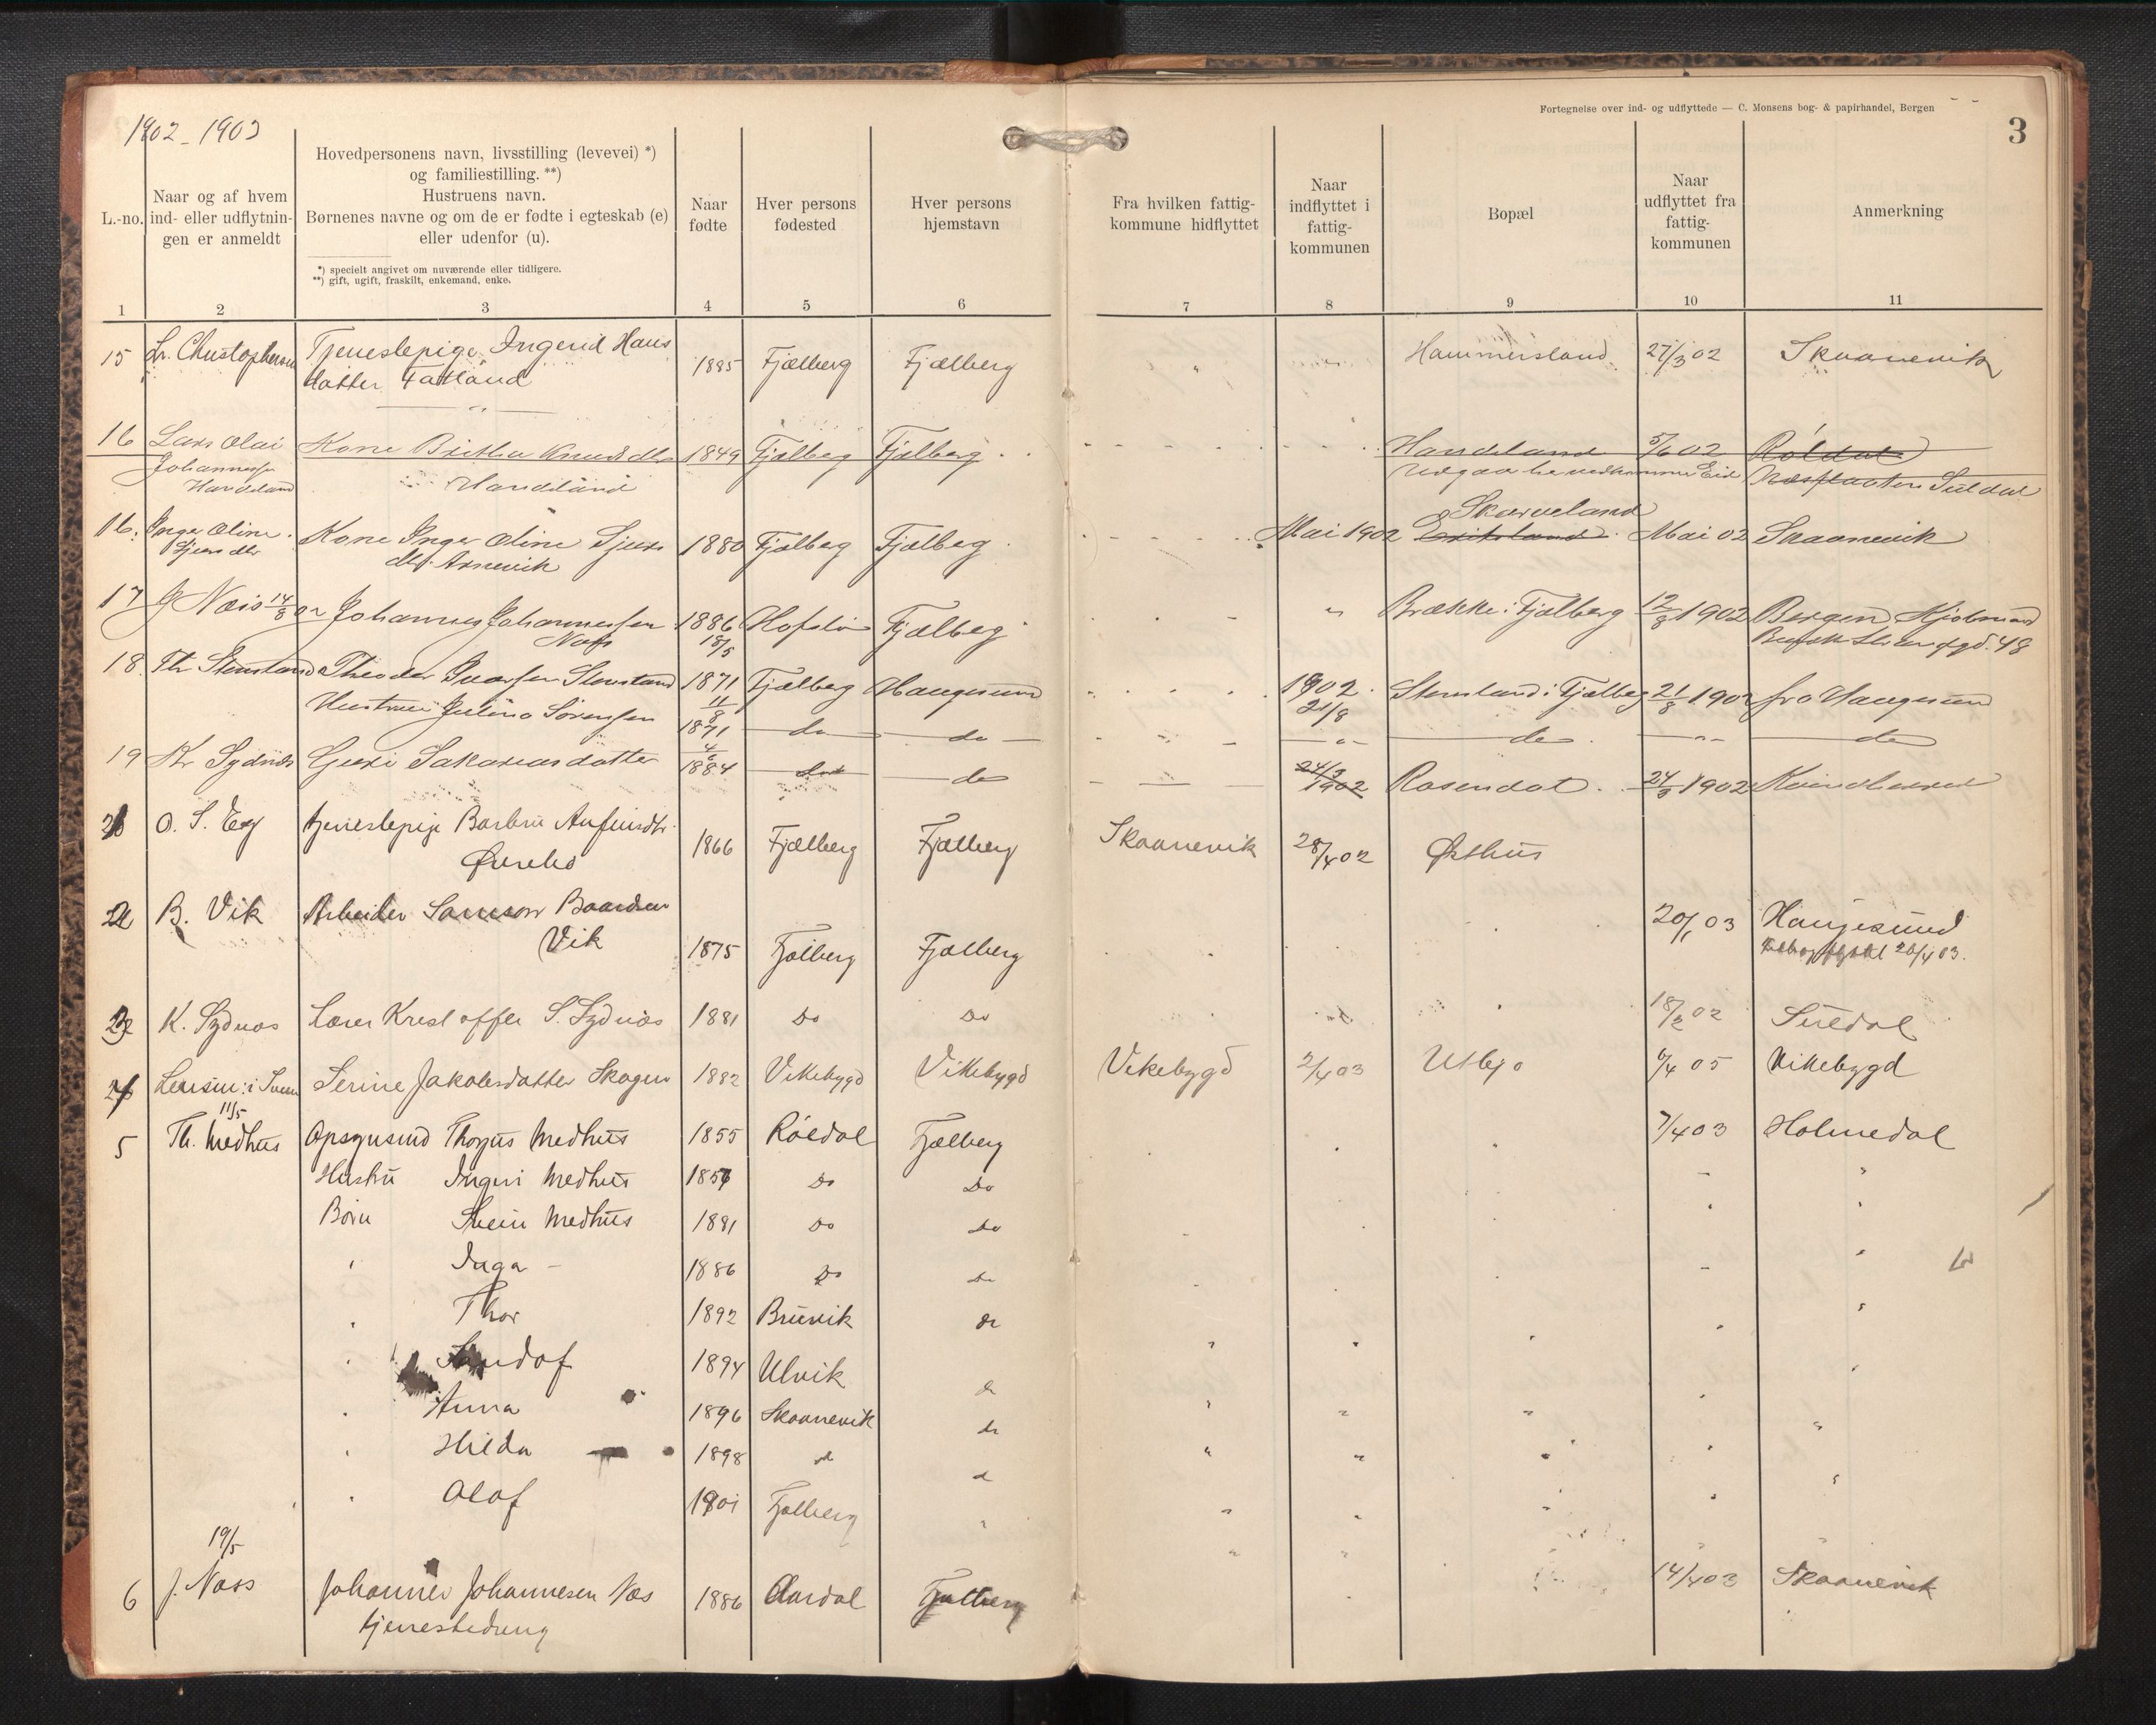 1902 - 1903
Fortegnelse over ind- og udflyttede — C. Monsens bog- & papirhandel, Bergen
3
L.-no.
Naar og af hvem
ind- eller udflytnin-
gen er anmeldt
Hovedpersonens navn, livsstilling (levevei) *)
og familiestilling. **)
Hustruens navn.
Børnenes navne og om de er fødte i egteskab (e)
eller udenfor (u).
*) specielt angivet om nuværende eller tidligere.
**) gift, ugift, fraskilt, enkemand, enke.
Naar
fødte
Hver persons
fødested
Hver persons
hjemstavn
Fra hvilken fattig-
kommune hidflyttet
Naar
indflyttet i
fattig-
kommunen
Bopæl
Naar
udflyttet fra
fattig-
kommunen
Anmerkning
1 2 3 4 5 6 7 8 9 10 11
15 L. Christophersen Tjenestepige Ingerid Hans 1885 Fjælberg Fjælberg Hammersland 27/3 02 Skaanevik
datter Tatland
16 Lars Olai Kone Britha Knudsdtr 1849 Fjælberg Fjælberg Handeland 5/6 02 Røldal
Johannessen Handeland Udgaar Eid Næsflaten Suldal
Handeland
Skarveland
16. Inger Oline Kone Inger Oline Sjurs 1880 Fjælberg Fjælberg Mai 1902 Mai 02 Skaanevik
Sjurs dtr dtr Arnevik
17 J Næs 14/8 02 Johannes Johannessen 1886 Fjælberg " Brække i Fjælberg 12/8 1902 Bergen
Næs 18/5 48
18 Th Stensland Theodor Ivarsen Stensland 1871 Fjælberg Haugesund 1902 Stensland i Fjælberg 21/8 1902 fra Haugesund
11/8 21/8
Hustru Julina Sørensen 1871 do do do do
4/6
19 Kr Sydnæs Guri Sakariasdatter 1884 do do 24/9 1902 Rosendal 24/9 1902 Kvindherred
O. S. Eng tjenestepige Barbru Anfinsdtr. 1866 Fjælberg Fjælberg Skaanevik 28/4 02 Østhus
Ørebø
B. Vik Arbeider Samson Baardsen 20/1 03 Haugesund
Vik 1875 Fjælberg Fjælberg 26/4 03.
K. Sydnæs Lærer Kristoffer S. Sydnæs 1881 Do Do 18/2 02 Suldal
Lensm. i Sveen Serine Jakobsdatter Skogen 1882 Vikebygd Vikebygd Vikebygd 2/4 03 Utbjo 6/4 05 Vikebygd
11/5
5 Th. Medhus Opsynsmd Thorgus Medhus 1855 Røldal Fjælberg 7/4 03 Holmedal
Hustru Ingeri Medhus 1856 Do Do
Børn Svein Medhus 1881 Do Do
" Inga 1886 Do Do
" Thor 1892 Bruvik do
" 1894 Ulvik do
" Anna 1896 Skaanevik do
" Hilda 1898 d d
" Olaf 1901 Fjælberg "
19/5
6 J. Næss Johannes Johannesen Næs 1886 Aardal Fjælberg 14/4 03 Skaanevik
tjenestedreng